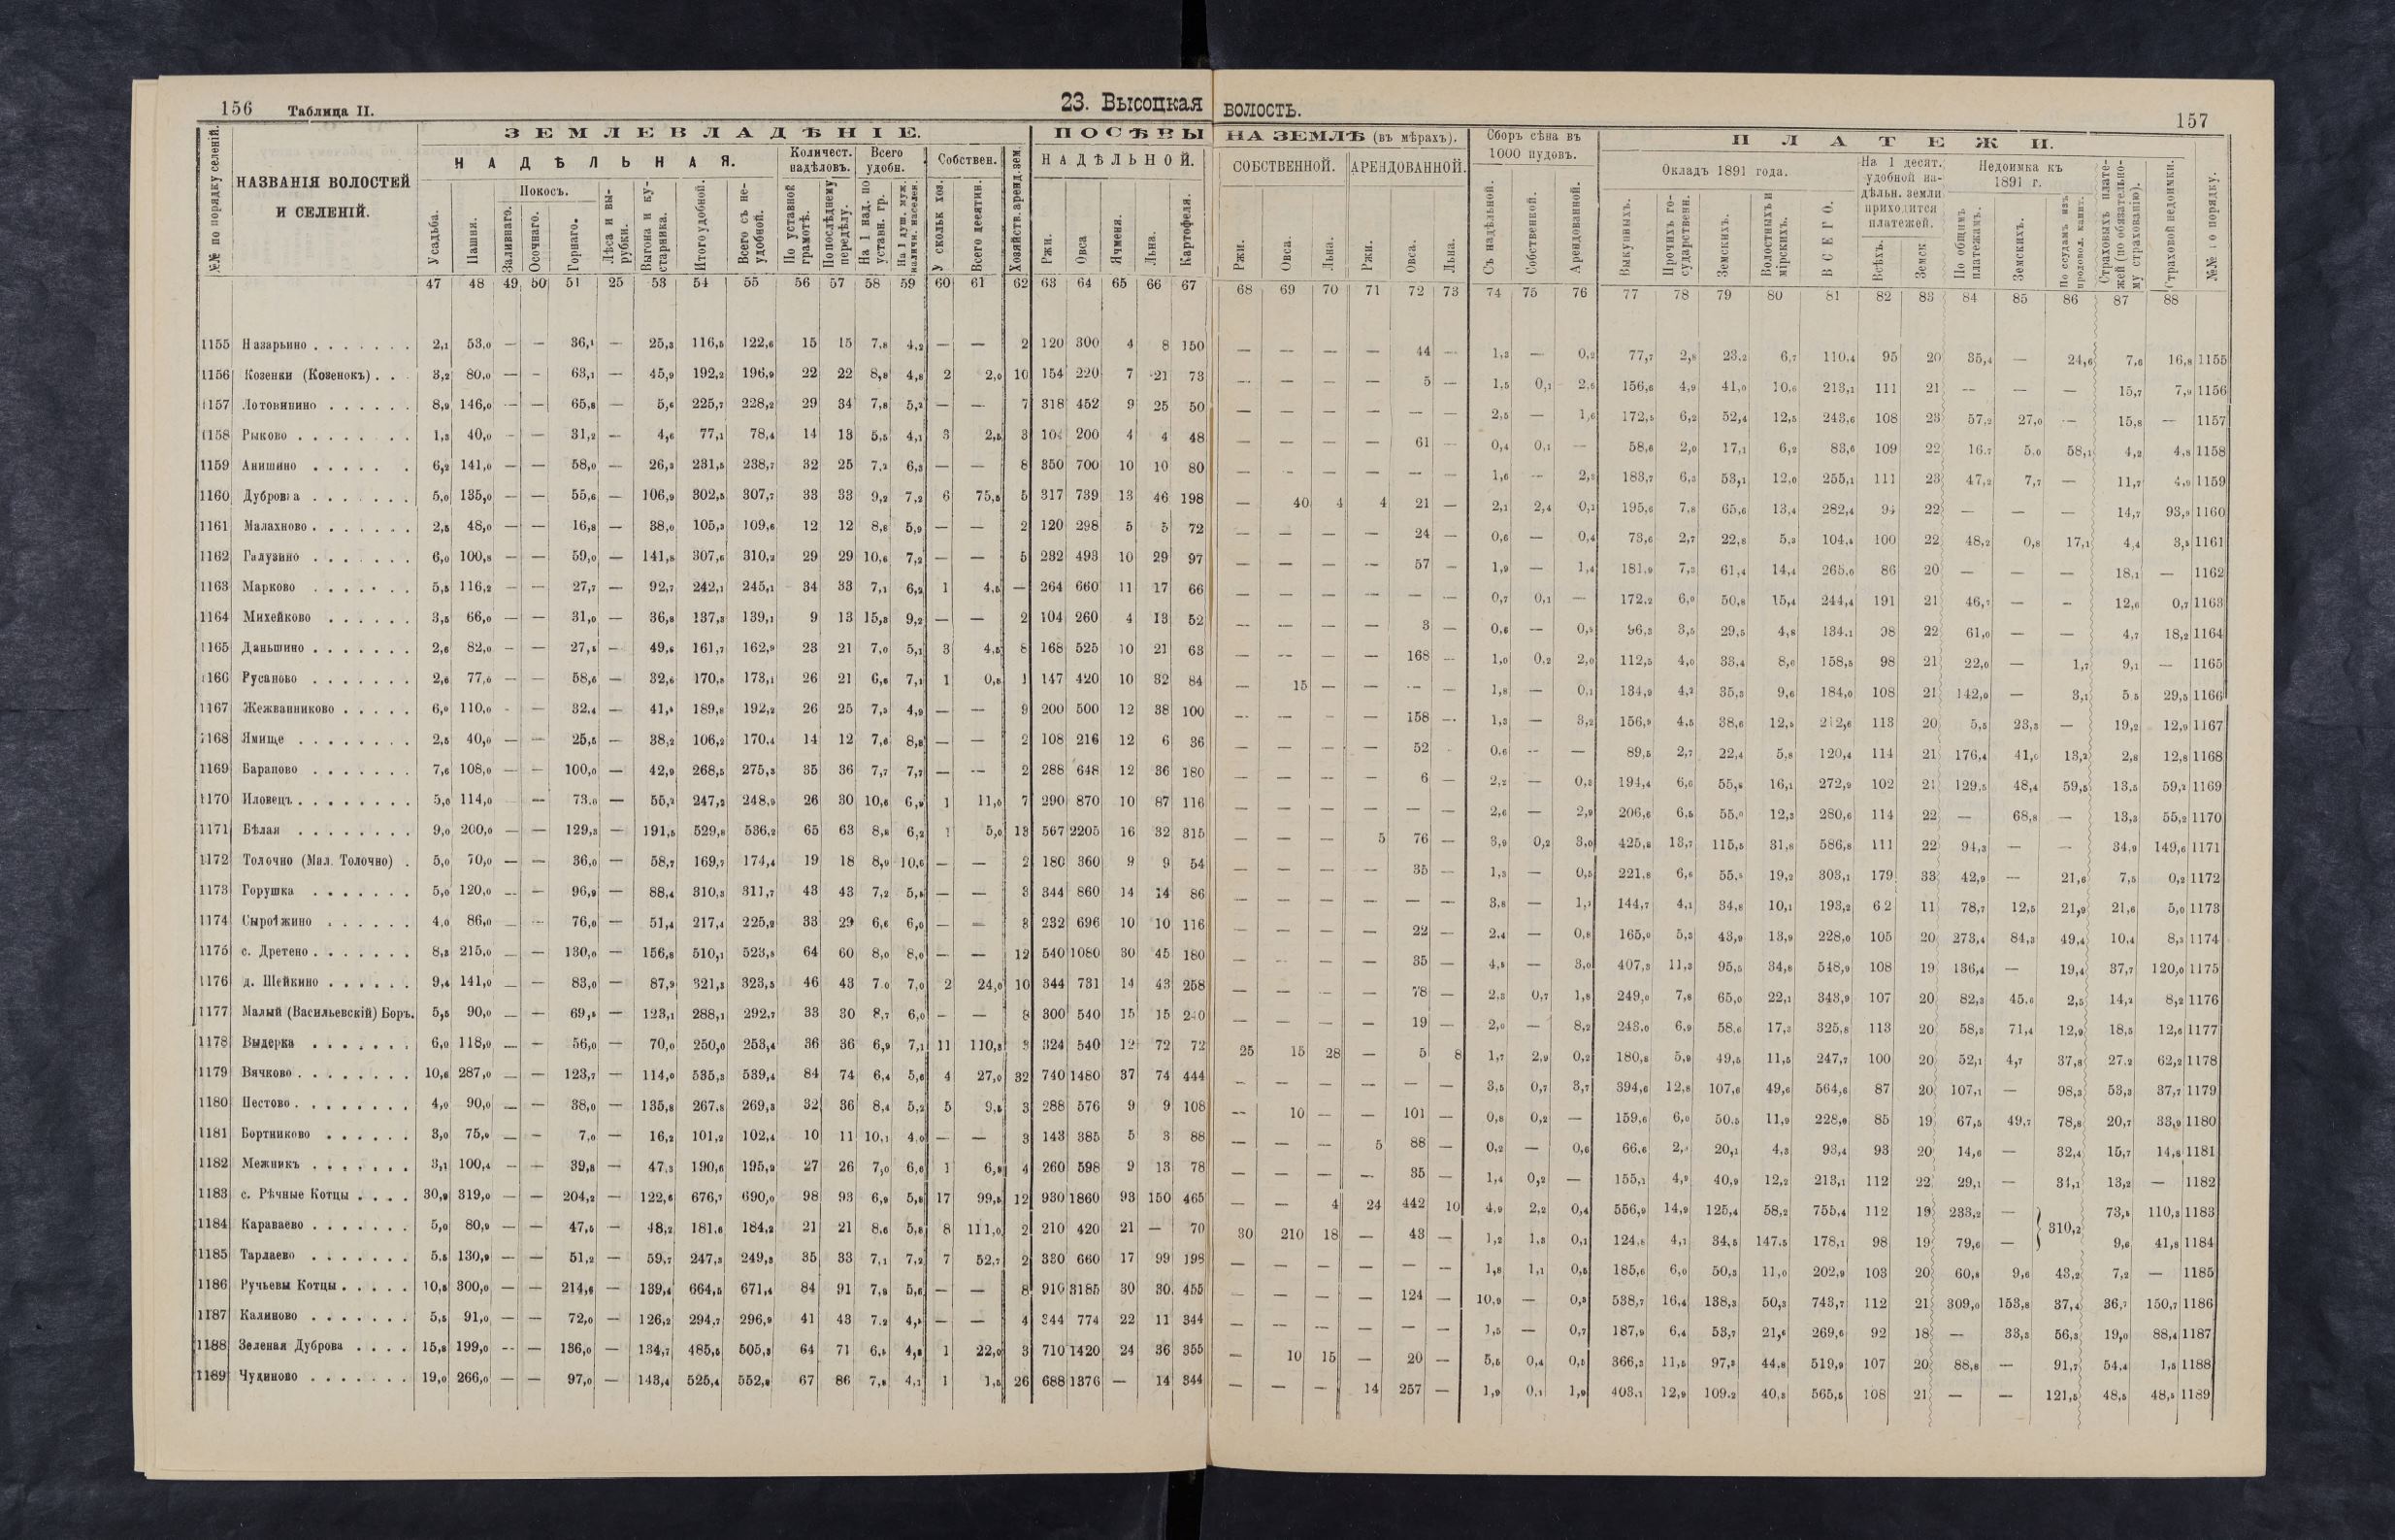 156 Таблица II.
23. Высоцкая
ЗЕМЛЕВЛАДѢНІЕ.
ПОСѢВЫ
№№ по порядку селеній.
НАЗВАНІЯ ВОЛОСТЕЙ
И СЕЛЕНІЙ.
НАДѢЛЬНАЯ.
Количест. надѣловъ.
Всего удобн.
Собствен.
Хозяйств. аренд. зем.
НАДѢЛЬНОЙ.
Усадьба.
Пашня.
Покосъ.
Заливнаго.
Осочнаго.
Горнаго.
Лѣса и вырубки.
Выгона и кустарника.
Итого удобной.
Всего съ неудобной.
По уставной грамотѣ.
По послѣднему передѣлу.
На 1 над. по уставн. гр.
На 1 душ. муж. наличн. населен.
У сколък хоз.
Всего десятин.
Ржи.
Овса
Ячменя.
Льна.
Картофеля.
47 48 49 50 51 25 53 54 55 56 57 58 59 60 61 62 63 64 65 66 67
1155 Назарьино . . . . . . . 2,1 53,0 — — 36,1 — 25,3 116,5 122,6 15 15 7,8 4,2 — — 2 120 300 4 8 150
1156 Козенки (Козенокъ) . . 3,2 80,0 — – 63,1 — 45,9 192,2 196,9 22 22 8,8 4,8 2 2,0 10 154 220 7 21 73
1157 Лотовинино . . . . . . 8,9 146,0 — — 65,8 — 5,6 225,7 228,2 29 34 7,8 5,2 — — 7 318 452 9 25 50
1158 Рыково . . . . . . . . 1,3 40,0 – — 31,2 — 4,6 77,1 78,4 14 13 5,5 4,1 3 2,5 3 200 4 4 48
1159 Анишино . . . . . . 6,2 141,0 — — 58,0 — 26,3 231,5 238,7 32 25 7,2 6,3 — — 8 350 700 10 10 80
1160 Дубровка . . . . . . . 5,0 135,0 — — 55,6 — 106,9 302,5 307,7 33 33 9,2 7,2 6 75,5 5 317 739 13 46 198
1161 Малахново . . . . . . . 2,5 48,0 — — 16,8 — 38,0 105,3 109,6 12 12 8,8 5,9 — — 2 120 298 5 5 72
1162 Галузино . . . . . . . 6,0 100,8 — — 59,0 — 141,8 307,6 310,2 29 29 10,6 7,2 — — 5 232 493 10 29 97
1163 Марково . . . . . . . 5,5 116,2 — — 27,7 — 92,7 242,1 245,1 34 33 7,1 6,2 1 4,5 — 264 660 11 17 66
1164 Михейково . . . . . . 3,5 66,0 — — 31,0 — 36,8 137,3 139,1 9 13 15,3 9,2 — — 2 104 260 4 13 52
1165 Даньшино . . . . . . . 2,6 82,0 — — 27,5 — 49,6 161,7 162,9 23 21 7,0 5,1 3 4,5 8 168 525 10 21 63
1166 Русаново . . . . . . . 2,6 77,0 — — 58,6 — 32,6 170,8 173,1 26 21 6,6 7,1 1 0,8 1 147 420 10 32 84
1167 Жежванниково . . . . . 6,0 110,0 – — 32,4 — 41,4 189,8 192,2 26 25 7,3 4,9 — — 9 200 500 12 38 100
1168 Ямище . . . . . . . . 2,5 40,0 — — 25,5 — 38,2 106,2 170,4 14 12 7,6 8,8 — — 2 108 216 12 6 36
1169 Бараново . . . . . . . 7,6 108,0 — — 100,0 — 42,9 268,5 275,3 35 36 7,7 7,7 — — 2 288 648 12 36 180
1170 Иловецъ . . . . . . . . 5,0 114,0 — 73,0 — 55,2 247,2 248,9 26 30 10,6 6,9 1 11,5 7 290 870 10 87 116
1171 Бѣлая . . . . . . . . 9,0 200,0 — — 129,3 — 191,5 529,8 536,2 65 63 8,8 6,2 1 5,0 13 567 2205 16 32 315
1172 Толочно (Мал. Толочно) . 5,0 70,0 — — 36,0 — 58,7 169,7 174,4 19 18 8,9 10,6 — — 2 180 360 9 9 54
1173 Горушка . . . . . . . 5,0 120,0 — — 96,9 — 88,4 310,3 311,7 43 43 7,2 5,5 — — 3 344 860 14 14 86
1174 Сыроѣжино . . . . . . 4,0 86,0 — — 76,0 — 51,4 217,4 225,9 33 29 6,6 6,0 — — 8 232 696 10 10 116
1175 с. Дретено . . . . . . . 8,3 215,0 — — 130,0 — 156,8 510,1 523,8 64 60 8,0 8,0 — — 12 540 1080 30 45 180
1176 д. Шейкино . . . . . . 9,4 141,0 — — 83,0 — 87,9 321,3 323,5 46 43 7,0 7,0 2 24,0 10 344 731 14 43 258
1177 Малый (Васильевскій) Боръ. 5,5 90,0 — — 69,5 — 123,1 288,1 292,7 33 30 8,7 6,0 — — 8 300 540 15 15
1178 Выдерка . . . . . . . 6,0 118,0 — — 56,0 — 70,0 250,0 253,4 36 36 6,9 7,1 11 110,8 3 324 540 12 72 72
1179 Вячково . . . . . . . . 10,6 287,0 — — 123,7 — 114,0 535,3 539,4 84 74 6,4 5,6 4 27,0 32 740 1480 37 74 444
1180 Пестово . . . . . . . . 4,0 90,0 — — 38,0 — 135,8 267,8 269,3 32 36 8,4 5,2 5 9,5 3 288 576 9 9 108
1181 Бортниково . . . . . . 3,0 75,0 — – 7,0 — 16,2 101,2 102,4 10 11 10,1 4,0 — — 3 143 385 5 3 88
1182 Межникъ . . . . . . . 3,1 100,4 — — 39,8 — 47,3 190,6 195,9 27 26 7,0 6,6 1 6,9 4 260 598 9 13 78
1183 с. Рѣчные Котцы . . . . 30,9 319,0 — — 204,2 — 122,6 676,7 690,0 98 93 6,9 5,8 17 99,5 12 930 1860 93 150 465
1184 Караваево . . . . . . . 5,0 80,9 — — 47,5 — 48,2 181,6 184,2 21 21 8,6 5,8 8 111,0 2 210 420 21 — 70
1185 Тарлаево . . . . . . . 5,5 130,9 — — 51,2 — 59,7 247,3 249,3 35 33 7,1 7,2 7 52,7 2 330 660 17 99 198
1186 Ручьевы Котцы . . . . . 10,5 300,0 — — 214,6 — 139,4 664,5 671,4 84 91 7,9 5,6 — — 8 910 3185 30 30 455
1187 Калиново . . . . . . . 5,5 91,0 — — 72,0 — 126,2 294,7 296,9 41 43 7,2 4,5 — — 4 344 774 22 11 344
1188 Зеленая Дуброва . . . . 15,8 199,0 -- — 136,0 — 134,7 485,5 505,3 64 71 6,5 4,8 1 22,0 3 710 1420 24 36 355
1189 Чудиново . . . . . . . 19,0 266,0 — — 97,0 — 143,4 525,4 552,8 67 86 7,8 4,1 1 1,5 26 688 1376 — 14 344
ВОЛОСТЬ.
157
НА ЗЕМЛѢ (въ мѣрахъ).
Сборъ сѣна въ 1000 пудовъ.
ПЛАТЕЖИ.
СОБСТВЕННОЙ.
АРЕНДОВАННОЙ.
Окладъ 1891 года.
На 1 десят. удобной надѣльн. земли приходится платежей.
Недоимка къ 1891 г.
Страховыхъ платежей (по обязательному страхованію).
Страховой недоимки.
№№ по порядку.
Ржи.
Овса.
Льна.
Ржи.
Овса.
Льна.
Съ надѣльной.
Собственной.
Арендованной.
Выкупныхъ.
Прочихъ государственн.
Земскихъ.
Волостныхъ и мірскихъ.
ВСЕГО.
Всѣхъ.
Земск
По общимъ платежамъ.
Земскихъ.
По ссудамъ изъ продовол. капит.
68 69 70 71 72 73 74 75 76 77 78 79 80 81 82 83 84 85 86 87 88
— — — — 44 — 1,3 — 0,2 77,7 2,8 23,2 6,7 110,4 95 20 35,4 — 24,6 7,6 16,8 1155
— — — — 5 — 1,5 0,1 2,6 156,6 4,9 41,0 10,6 213,1 111 21 — — — 15,7 7,9 1156
— — — — — — 2,5 — 1,6 172,5 6,2 52,4 12,5 243,6 108 23 57,2 27,0 — 15,8 — 1157
— — — — 61 — 0,4 0,1 — 58,6 2,0 17,1 6,2 83,6 109 22 16,7 5,0 58,1 4,2 4,8 1158
— — — — — — 1,6 — 2,2 183,7 6,3 53,1 12,0 255,1 111 23 47,2 7,7 — 11,7 4,9 1159
— 40 4 4 21 — 2,1 2,4 0,1 195,6 7,8 65,6 13,4 282,4 94 22 — — — 14,7 93,9 1160
— — — — 24 — 0,6 — 0,4 73,6 2,7 22,8 5,3 104,4 100 22 48,2 0,8 17,1 4,4 3,5 1161
— — — — 57 — 1,9 — 1,4 181,9 7,3 61,4 14,4 265,0 86 20 — — — 18,1 — 1162
— — — — — — 0,7 0,1 — 172,2 6,0 50,8 15,4 244,4 191 21 46,7 — – 12,6 0,7 1163
— — — — 3 — 0,6 — 0,5 96,3 3,5 29,5 4,8 134,1 98 22 61,0 — — 4,7 18,2 1164
— — — — 168 — 1,0 0,2 2,0 112,5 4,0 33,4 8,6 158,5 98 21 22,0 — 1,7 9,1 — 1165
— 15 — — — — 1,8 — 0,1 134,9 4,2 35,3 9,6 184,0 108 21 142,0 — 3,1 5,5 29,5 1166
— — — — 158 — 1,3 — 3,2 156,9 4,5 38,6 12,5 212,6 113 20 5,5 23,3 — 19,2 12,9 1167
— — — — 52 - 0,6 -- — 89,5 2,7 22,4 5,8 120,4 114 21 176,4 41,0 13,2 2,8 12,8 1168
— — — — 6 — 2,2 — 0,5 194,4 6,6 55,8 16,1 272,9 102 21 129,5 48,4 59,5 13,5 59,2 1169
— — — — — — 2,6 — 2,9 206,6 6,5 55,0 12,3 280,6 114 22 — 68,8 — 13,3 55,2 1170
— — — 5 76 — 3,9 0,2 3,0 425,8 13,7 115,5 31,8 586,8 111 22 94,3 — — 34,9 149,6 1171
— — — — 35 — 1,3 — 0,5 221,8 6,6 55,5 19,2 303,1 179 33 42,9 — 21,6 7,5 0,2 1172
— — — — — — 3,8 — 1,1 144,7 4,1 34,8 10,1 193,2 62 11 78,7 12,5 21,9 21,6 5,0 1173
— — — — 22 — 2,4 — 0,8 165,0 5,3 43,9 13,9 228,0 105 20 273,4 84,3 49,4 10,4 8,3 1174
— — — — 35 — 4,5 — 3,0 407,3 11,3 95,5 34,8 548,9 108 19 136,4 — 19,4 37,7 120,0 1175
— — — — 78 — 2,3 0,7 1,8 249,0 7,8 65,0 22,1 343,9 107 20 82,3 45,6 2,5 14,2 8,2 1176
— — — — 19 — 2,0 — 8,2 243,0 6,9 58,6 17,3 325,8 113 20 58,3 71,4 12,9 18,5 12,6 1177
25 15 28 — 5 8 1,7 2,9 0,2 180,8 5,9 49,5 11,5 247,7 100 20 52,1 4,7 37,8 27,2 62,2 1178
— — — — — — 3,5 0,7 3,7 394,6 12,8 107,6 49,6 564,6 87 20 107,1 — 98,3 53,3 37,7 1179
— 10 — — 101 — 0,8 0,2 — 159,6 6,0 50,5 11,9 228,0 85 19 67,5 49,7 78,8 20,7 33,9 1180
— — — 5 88 — 0,2 — 0,6 66,6 20,1 4,3 93,4 93 20 14,6 — 32,4 15,7 14,8 1181
— — — — 35 — 1,4 0,2 — 155,1 4,9 40,9 12,2 213,1 112 22 29,1 — 31,1 13,2 — 1182
— — 4 24 442 10 4,9 2,2 0,4 556,9 14,9 125,4 58,2 755,4 112 19 233,2 — 310,2 73,5 110,3 1183
30 210 18 — 43 — 1,2 1,3 0,1 124,8 4,1 34,5 147,5 178,1 98 19 79,6 — 9,6 41,8 1184
— — — — — — 1,8 1,1 0,5 185,6 6,0 50,3 11,0 202,9 103 20 60,8 9,6 43,2 7,2 — 1185
— — — — 124 — 10,9 — 0,3 538,7 16,4 138,3 50,3 743,7 112 21 309,0 153,8 37,4 36,7 150,7 1186
— — — — — — 1,5 — 0,7 187,9 6,4 53,7 21,6 269,6 92 18 — 33,3 56,3 19,0 88,4 1187
— 10 15 — 20 — 5,5 0,4 0,5 366,3 11,5 97,3 44,8 519,9 107 20 88,8 — 91,7 54,4 1,5 1188
— — — 14 257 — 1,9 0,1 1,9 403,1 12,9 109,2 40,3 565,5 108 21 — — 121,5 48,5 48,5 1189